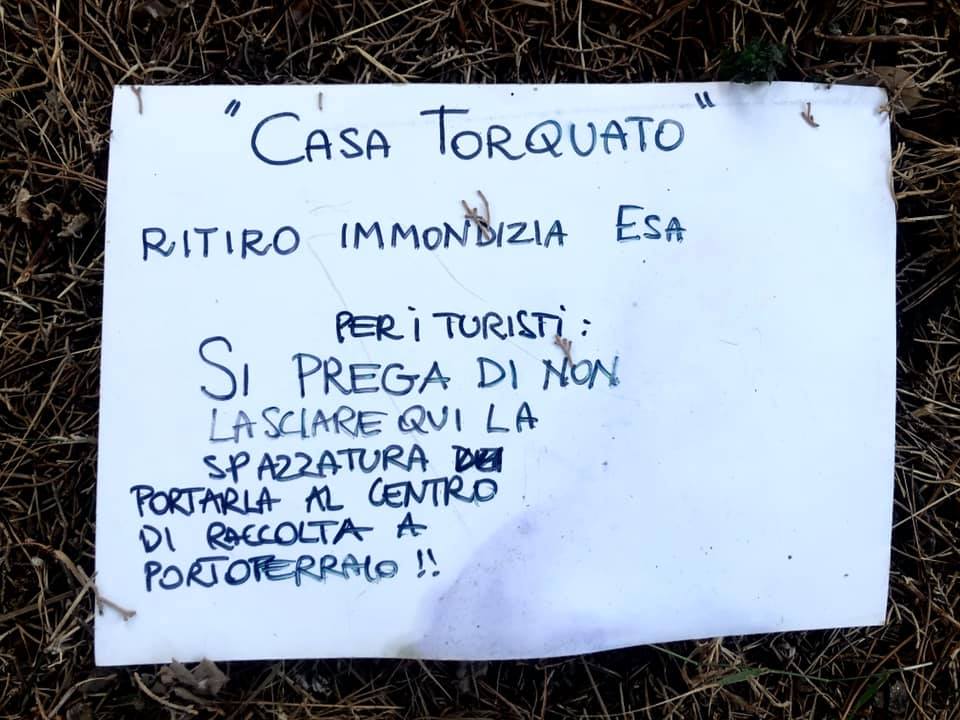 "CASA TORQUATO"
RITIRO IMMONDIZIA ESA
PER i TURISTi:
SI PREGA DI NON
LASCIARE QUI LA
SPAZZATURA
PORTARLA AL CENTRO
DI RACCOLTA A
PORTOFERRAIO !!